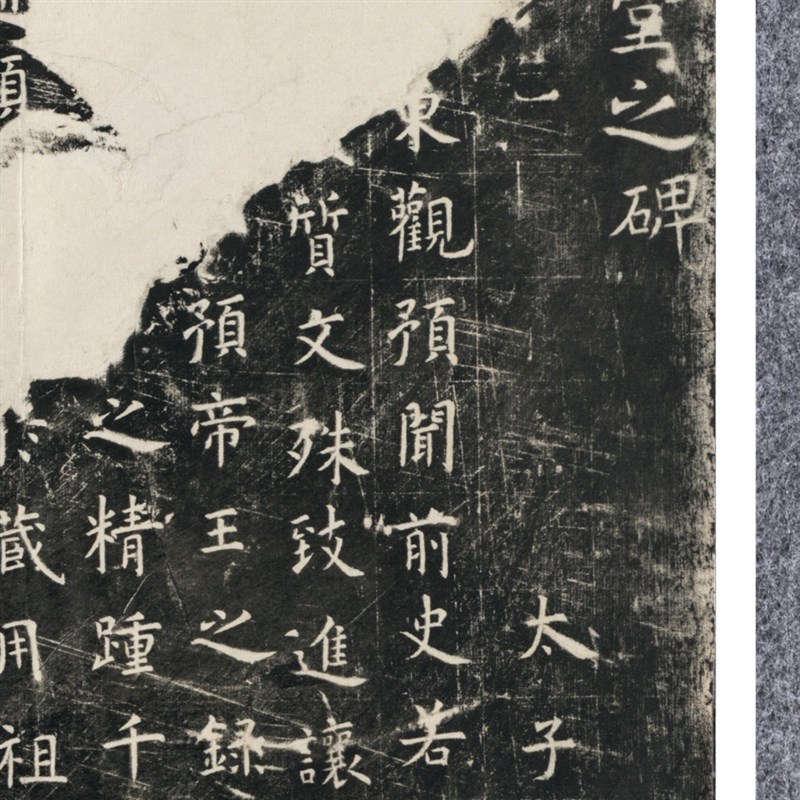 堂之碑
太子
東觀預聞前史若
質文殊致進讓
預帝王之錄
之精踵千
藏用祖